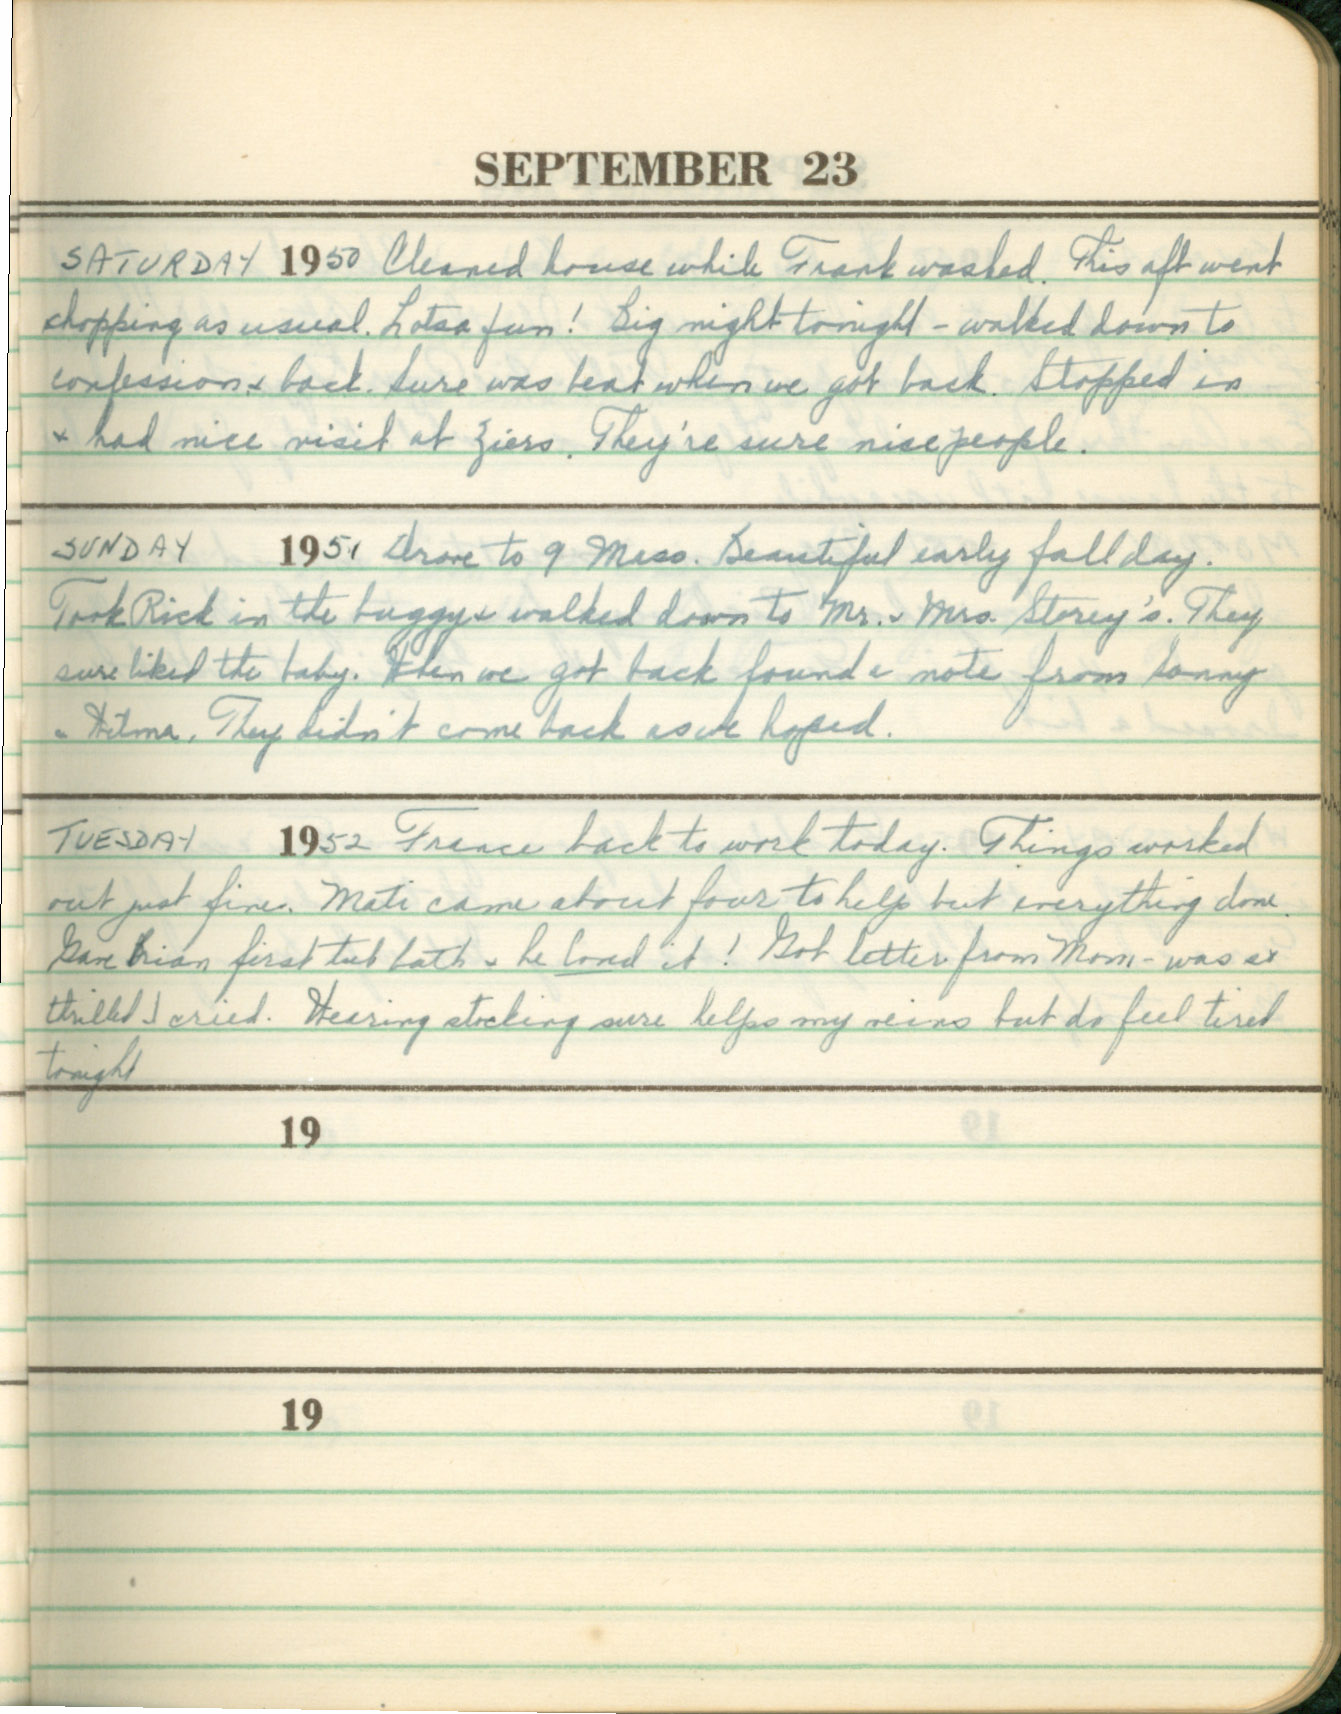 SEPTEMBER 23
SATURDAY 1950 Cleaned house while Frank washed. This aft went
shopping as usual. Lotsa fun! Big night tonight - walked down to
confession & back. Sure was beat when we got back. Stopped in
& had nice visit at Ziers. They're sure nice people.
SUNDAY 1951 Drove to 9 Mass. Beautiful early fall day.
Took Rick in the buggy & walked down to Mr. & Mrs. Storey's. They
sure liked the baby. When we got back found a note from Sonny
& Hilma. They didn't come back as we hoped.
TUESDAY 1952 France back to work today. Things worked
out just fine. Mati came about four to help but everything done.
Gave Brian first tub bath & he loved it! Got letter from Mom - was so
thrilled I cried. Wearing stocking sure helps my veins but do feel tired
tonight
19
19